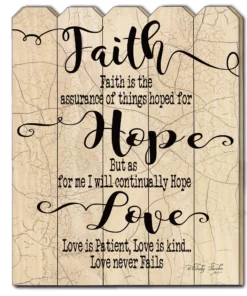 Faith
Faith is the
assurance of things hoped for
Hope
But as
for me I will continually Hope
Love
Love is Patient, Love is kind...
Love never Fails